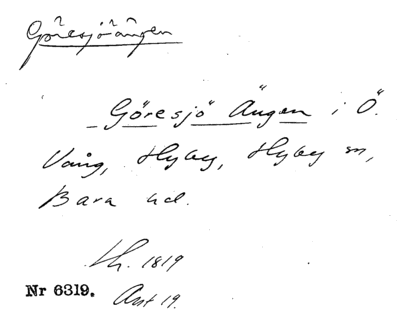 Göresjöängen
Göresjö Ängen i Ö.
Vång, Hyby, Hyby sn,
Bara hd.
Lh. 1819
Nr 6319. Akt 19.